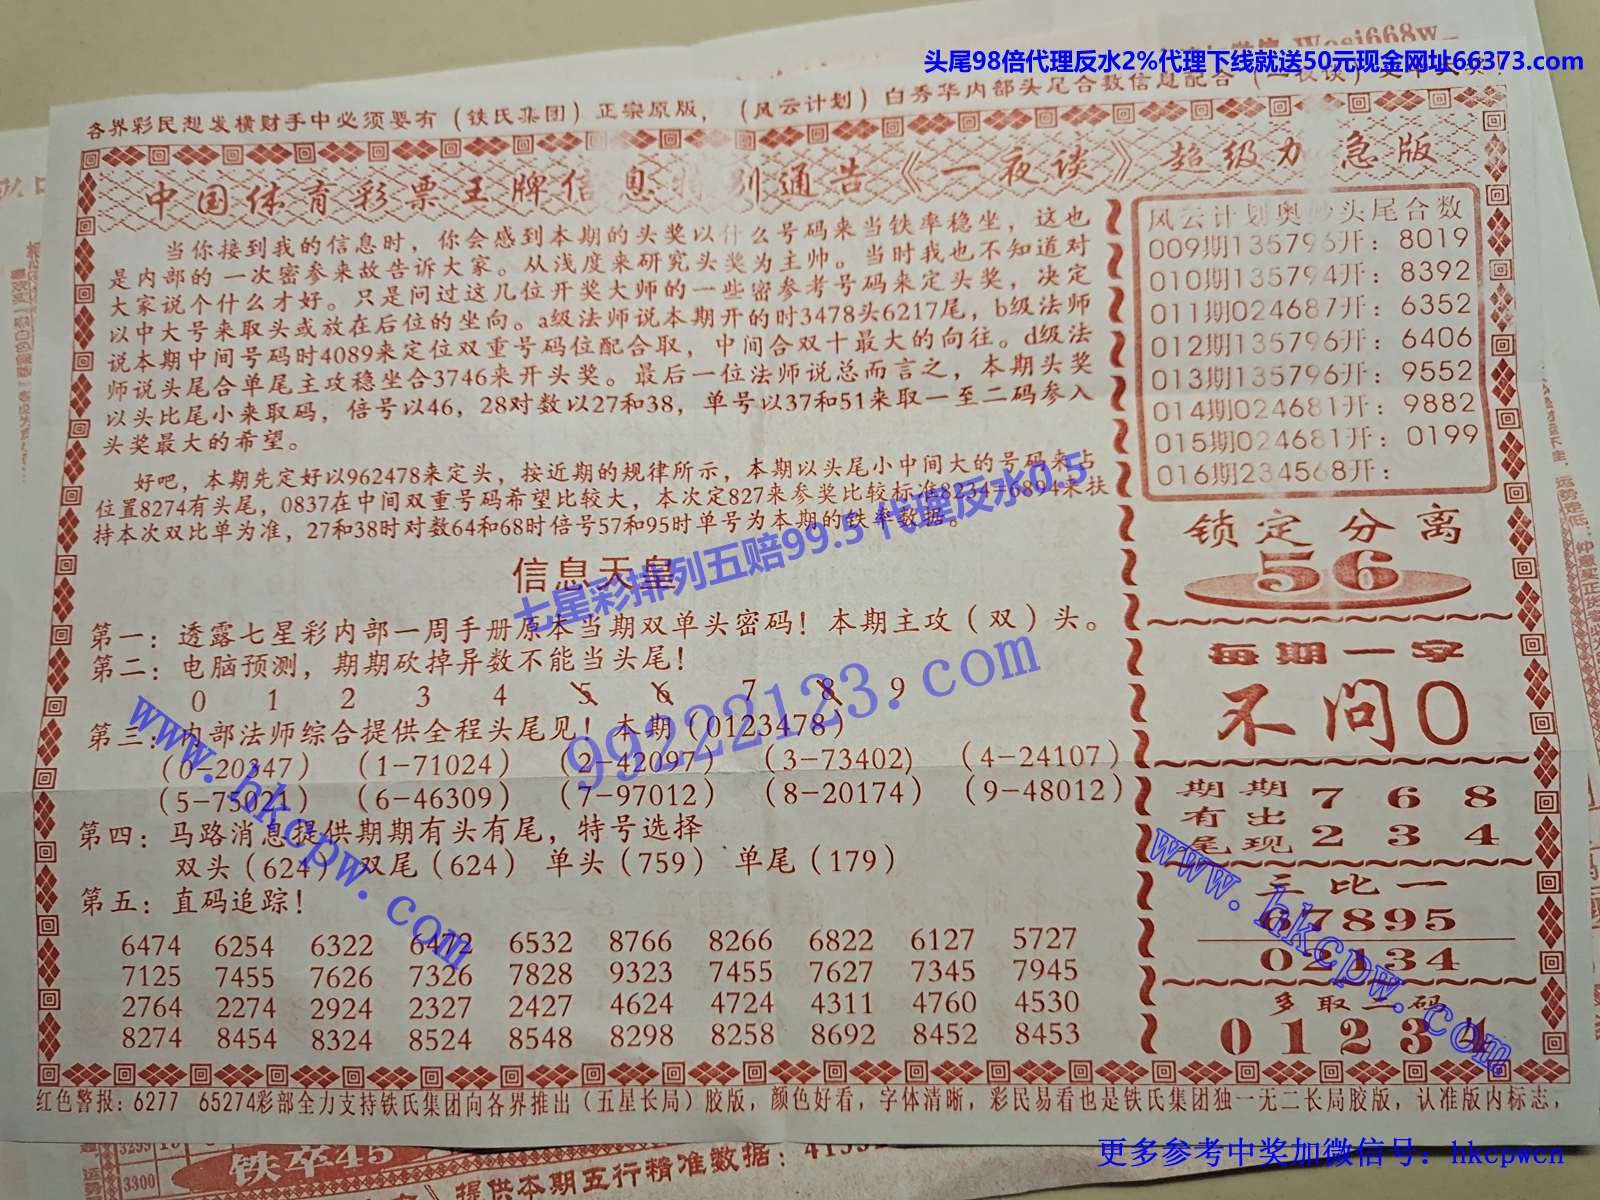 头尾98倍代理反水2%代理下线就送50元现金网址66373.com
各界彩民想发横财手中必须要有（铁氏集团）正宗原版，（风云计划）白秀华内部头尾合数信息配合（一夜谈）
中国体育彩票王牌信息特别通告《一夜谈》超级加急版
当你接到我的信息时，你会感到本期的头奖以什么号码来当铁率稳坐，这也
是内部的一次密参来故告诉大家。从浅度来研究头奖为主帅。当时我也不知道对
大家说个什么才好。只是问过这几位开奖大师的一些密参考号码来定头奖，决定
以中大号来取头或放在后位的坐向。a级法师说本期开的时3478头6217尾，b级法师
说本期中间号码时4089来定位双重号码位配合取，中间合双十最大的向往。d级法
师说头尾合单尾主攻稳坐合3746来开头奖。最后一位法师说总而言之，本期头奖
以头比尾小来取码，倍号以46，28对数以27和38，单号以37和51来取一至二码参入
头奖最大的希望。
好吧，本期先定好以962478来定头，按近期的规律所示，本期以头尾小中间大的号码来占
位置8274有头尾，0837在中间双重号码希望比较大，本次定827来参奖比较标准8234=6894来扶
持本次双比单为准，27和38时对数64和68时倍号57和95时单号为本期的铁率数据。
信息天皇
七星彩排列五赔99.5 代理反水0.5
第一：透露七星彩内部一周手册原本当期双单头密码！本期主攻（双）头。
第二：电脑预测，期期砍掉异数不能当头尾！
0 1 2 3 4 5 6 7 8 9
第三：内部法师综合提供全程头尾见！本期（0123478）
（0-20347）（1-71024）（2-42097）（3-73402）（4-24107）
（5-75021）（6-46309）（7-97012）（8-20174）（9-48012）
第四：马路消息提供期期有头有尾，特号选择
双头（624）双尾（624）单头（759）单尾（179）
第五：直码追踪！
6474 6254 6322 6472 6532 8766 8266 6822 6127 5727
7125 7455 7626 7326 7828 9323 7455 7627 7345 7945
2764 2274 2924 2327 2427 4624 4724 4311 4760 4530
8274 8454 8324 8524 8548 8298 8258 8692 8452 8453
风云计划奥妙头尾合数
009期135796开：8019
010期135794开：8392
011期024687开：6352
012期135796开：6406
013期135796开：9552
014期024681开：9882
015期024681开：0199
016期234568开：
锁定分离
56
每期一字
不问0
期期有出尾现
7 6 8
2 3 4
三比一
67895
02134
多取二码
0 1 2 3 4
www.hkcpw.com
99222123.com
www.hkcpw.com
红色警报：6277 65274彩部全力支持铁氏集团向各界推出（五星长局）胶版，颜色好看，字体清晰，彩民易看也是铁氏集团独一无二长局胶版，认准版内标志，
3299
3300
铁卒45
提供本期五行精准数据：
更多参考中奖加微信号：hkcpwcn